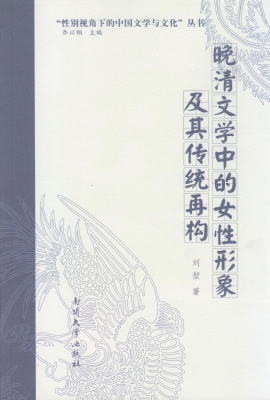 “性别视角下的中国文学与文化”丛书
乔以钢　主编
晚清文学中的女性形象
及其传统再构
刘堃　著
南开大学出版社